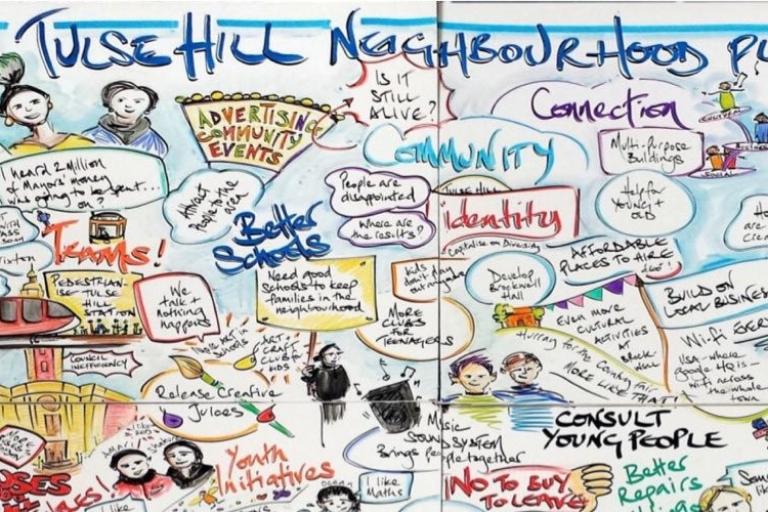 TULSE HILL NEIGHBOURHOOD PL
IS IT
STILL
ALIVE?
ADVERTISING
COMMUNITY
EVENTS
Connection
Multi-Purpose
Buildings
COMMUNITY
I heard 2 Million
of Mayors' money
was going to be spent...
on?
Attract
People to the
area
People are
disappointed
Where are
the results?
TULSE HILL
Identity
Capitalise on Diversity
Help for
YOUNG +
OLD
Better
Schools
TEAMS!
PEDESTRIAN-
ISE-TULSE
HILL
STATION
We
talk +
nothing
happens
Need good
schools to keep
families in the
neighbourhood
kids
don't
MORE
CLUBS
FOR
TEENAGERS
Develop
Brockwell
Hall
AFFORDABLE
PLACES TO HIRE
BUILD ON
LOCAL BUSINESS
EVEN MORE
CULTURAL
ACTIVITIES
AT
Hurray for the Country fair
MORE LIKE THAT!
Wi-fi EVERY
USA-where
google HQ is-
wifi across
the whole
town
COUNCIL
INEFFICIENCY
More ART in
Schools
ART +
CRAFT
CLUBS for
KIDS
Release Creative
Juices
Music
SOUND SYSTEM
Brings people together
CONSULT
YOUNG PEOPLE
Youth
Initiatives
I like
Maths
I like
NO TO BUY
TO LEAVE
Better
Repairs